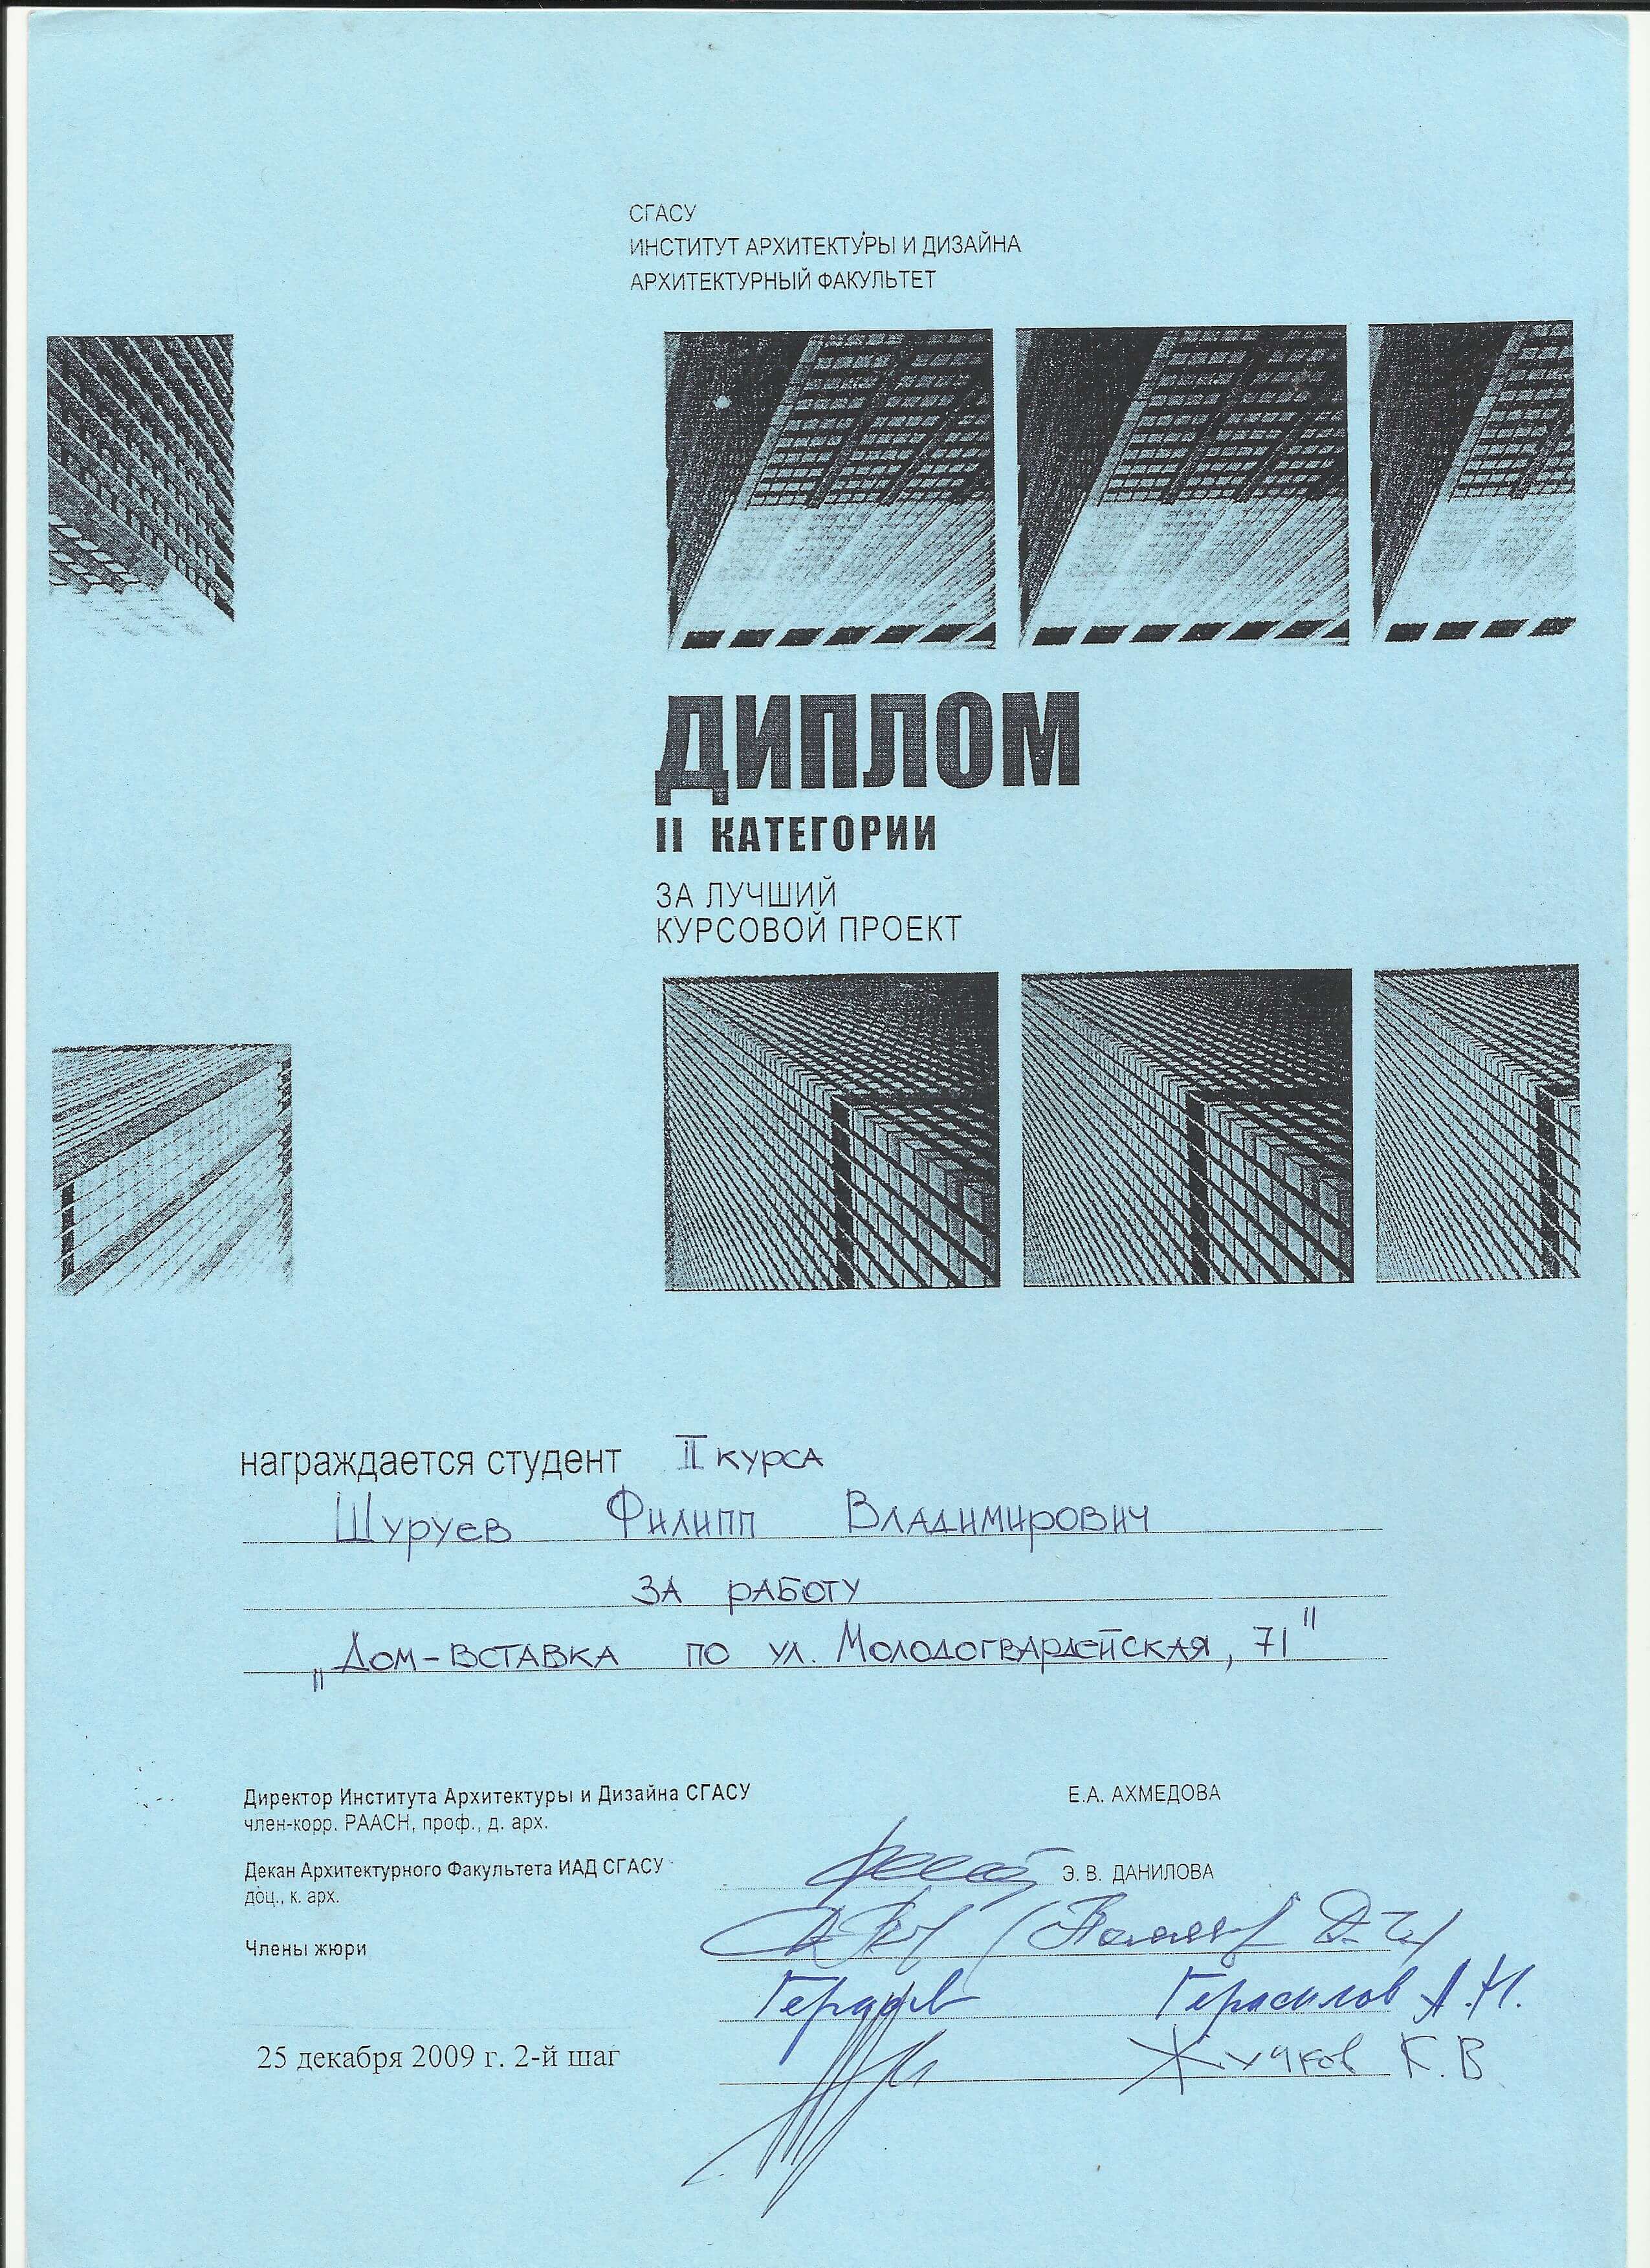 СГАСУ
ИНСТИТУТ АРХИТЕКТУРЫ И ДИЗАЙНА
АРХИТЕКТУРНЫЙ ФАКУЛЬТЕТ
ДИПЛОМ
II КАТЕГОРИИ
ЗА ЛУЧШИЙ
КУРСОВОЙ ПРОЕКТ
награждается студент II курса
Шуруев Филипп Владимирович
за работу
„Дом-вставка по ул. Молодогвардейская, 71"
Директор Института Архитектуры и Дизайна СГАСУ Е.А. АХМЕДОВА
член-корр. РААСН, проф., д. арх.
Декан Архитектурного Факультета ИАД СГАСУ Э. В. ДАНИЛОВА
доц., к. арх.
Члены жюри
Герасимов А.Н.
25 декабря 2009 г. 2-й шаг
Жучков К.В